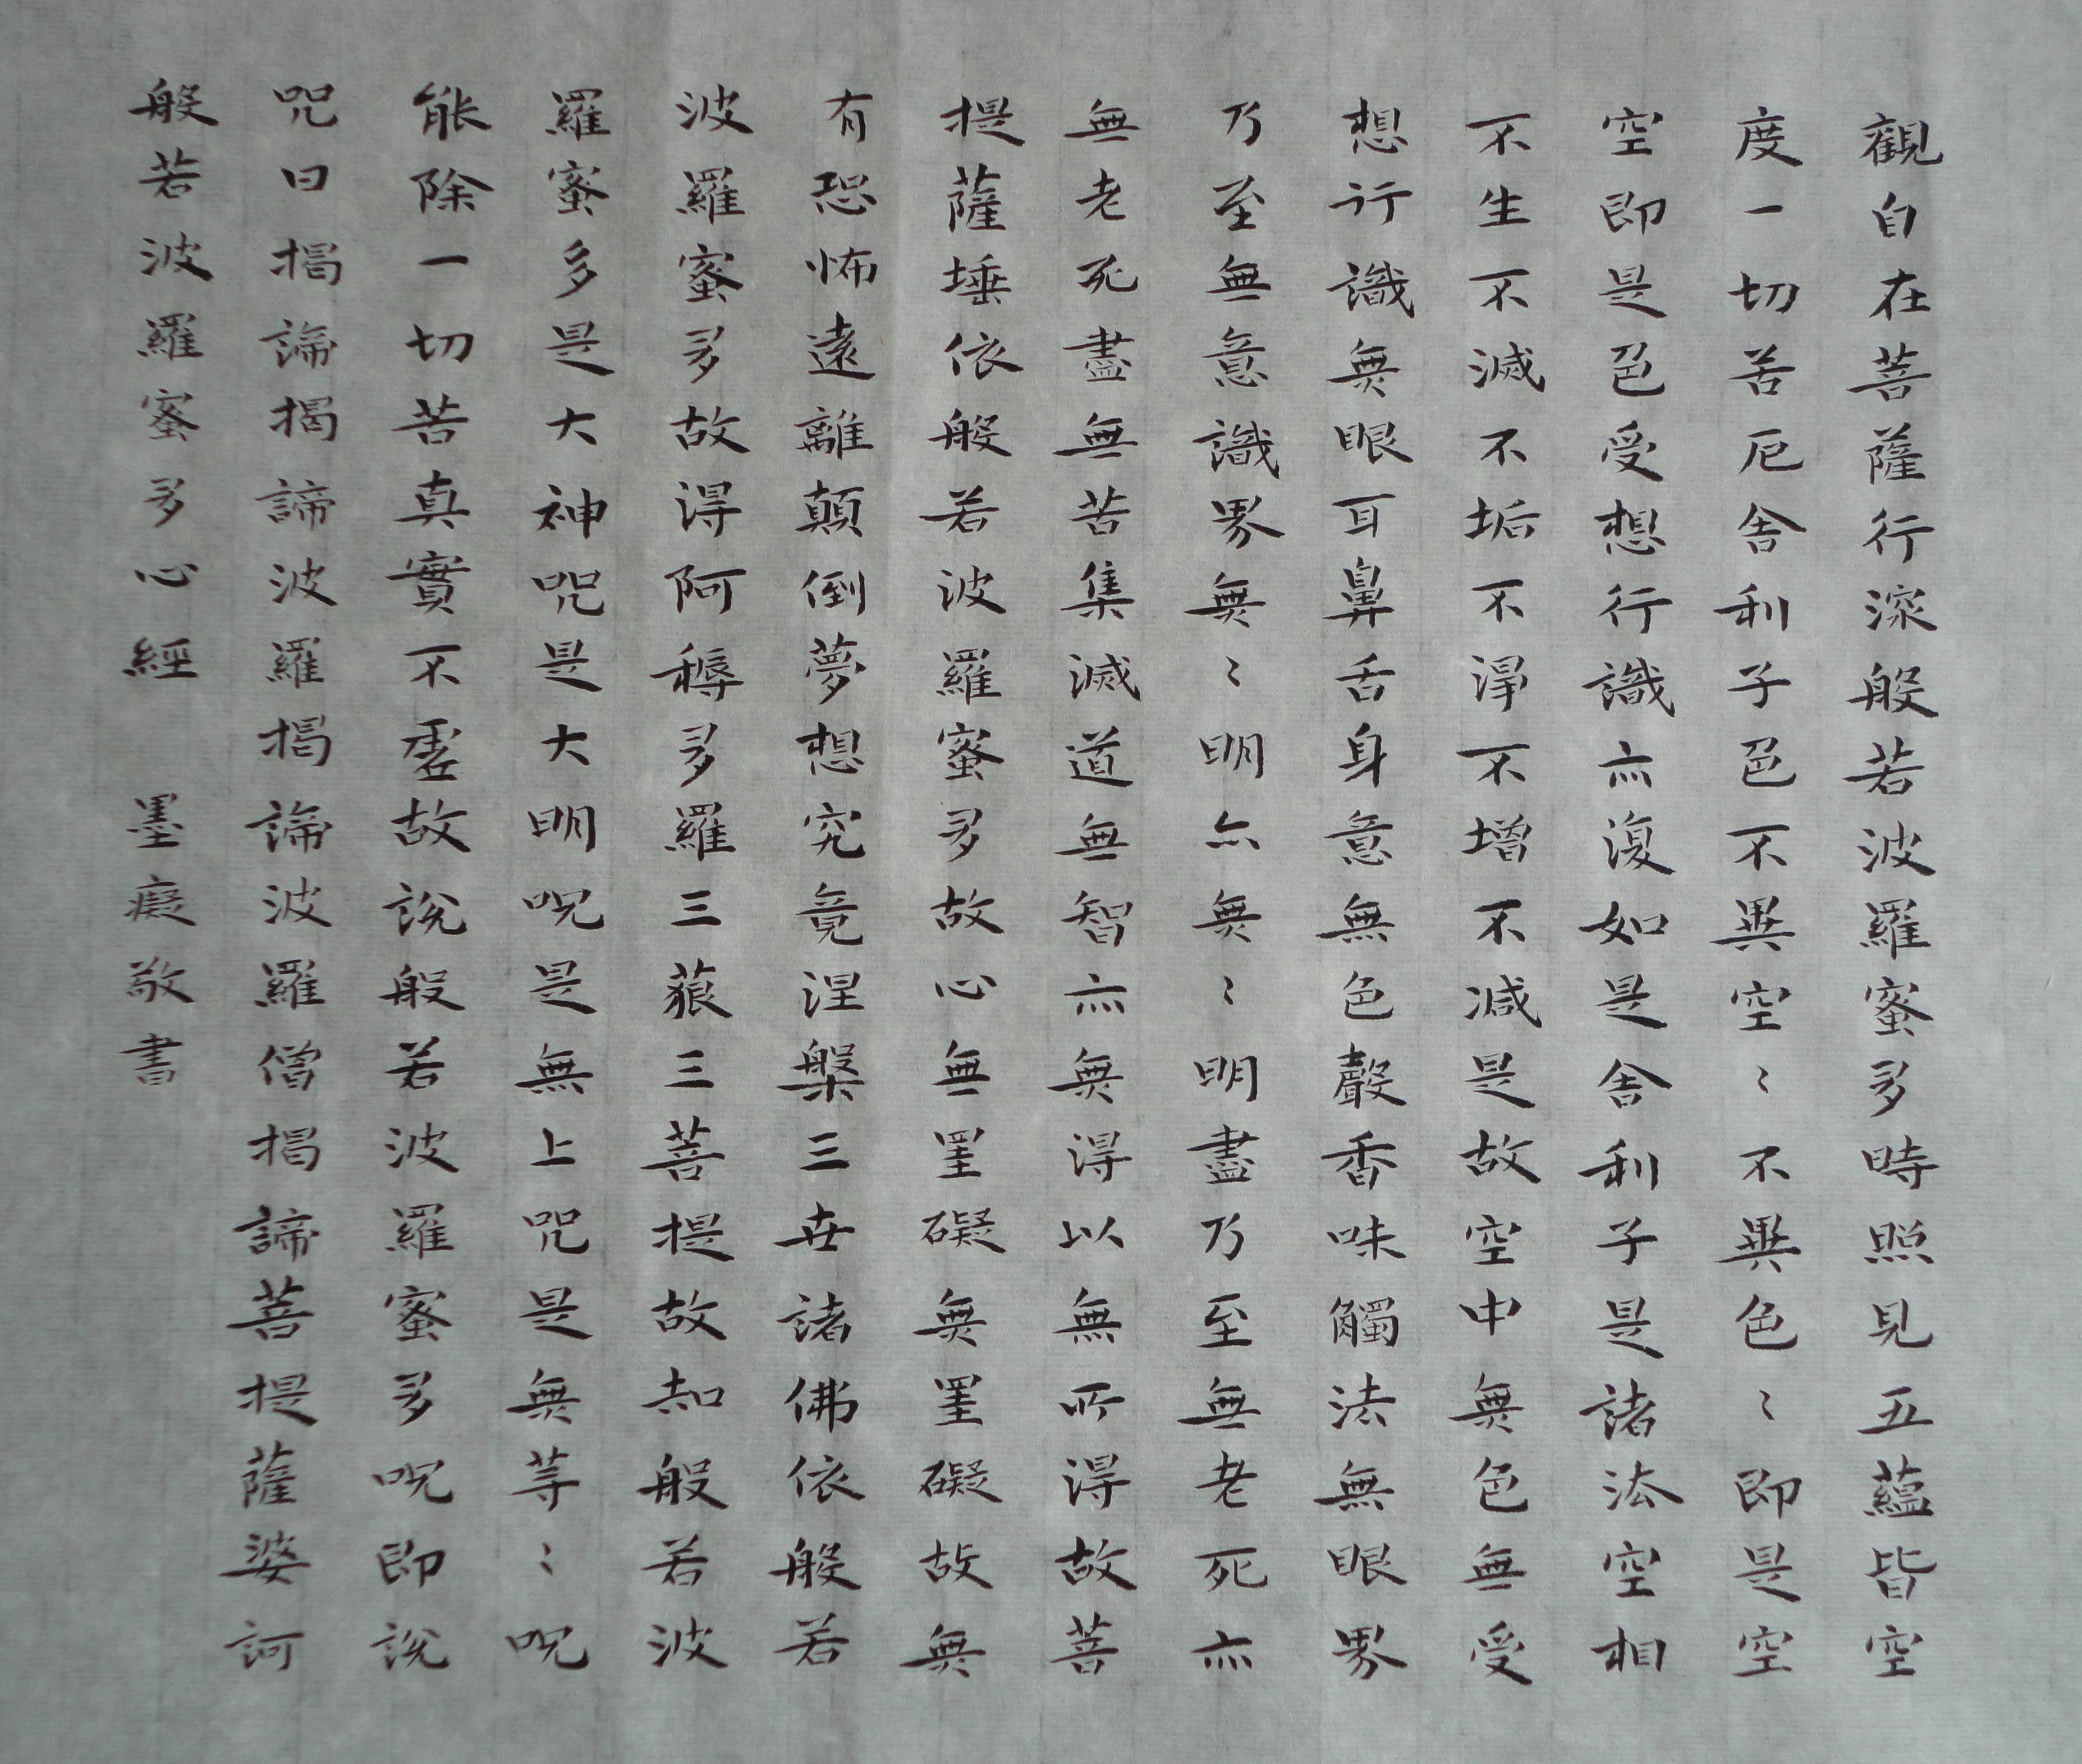 觀自在菩薩行深般若波羅蜜多時照見五蘊皆空
度一切苦厄舍利子色不異空〻不異色〻即是空
空即是色受想行識亦復如是舍利子是諸法空相
不生不滅不垢不淨不增不減是故空中無色無受
想行識無眼耳鼻舌身意無色聲香味觸法無眼界
乃至無意識界無〻明亦無〻明盡乃至無老死亦
無老死盡無苦集滅道無智亦無得以無所得故菩
提薩埵依般若波羅蜜多故心無罣礙無罣礙故無
有恐怖遠離顛倒夢想究竟涅槃三世諸佛依般若
波羅蜜多故得阿耨多羅三藐三菩提故知般若波
羅蜜多是大神咒是大明呪是無上咒是無等〻呪
能除一切苦真實不虛故說般若波羅蜜多呪即說
咒曰揭諦揭諦波羅揭諦波羅僧揭諦菩提薩婆訶
般若波羅蜜多心經 墨癡敬書